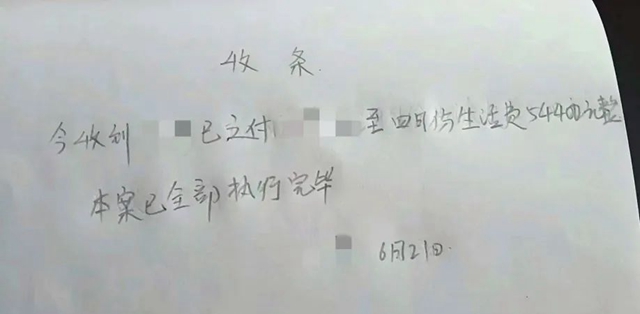 收条
今收到 已交付 至四月份生活费54400元整
本案已全部执行完毕
6月21日.